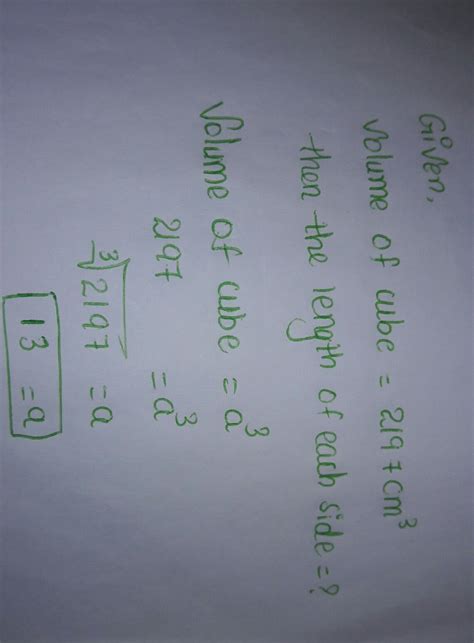 Given,
Volume of cube = 2197cm³
then the length of each side = ?
Volume of cube = a³
2197 = a³
³√2197 = a
13 = a